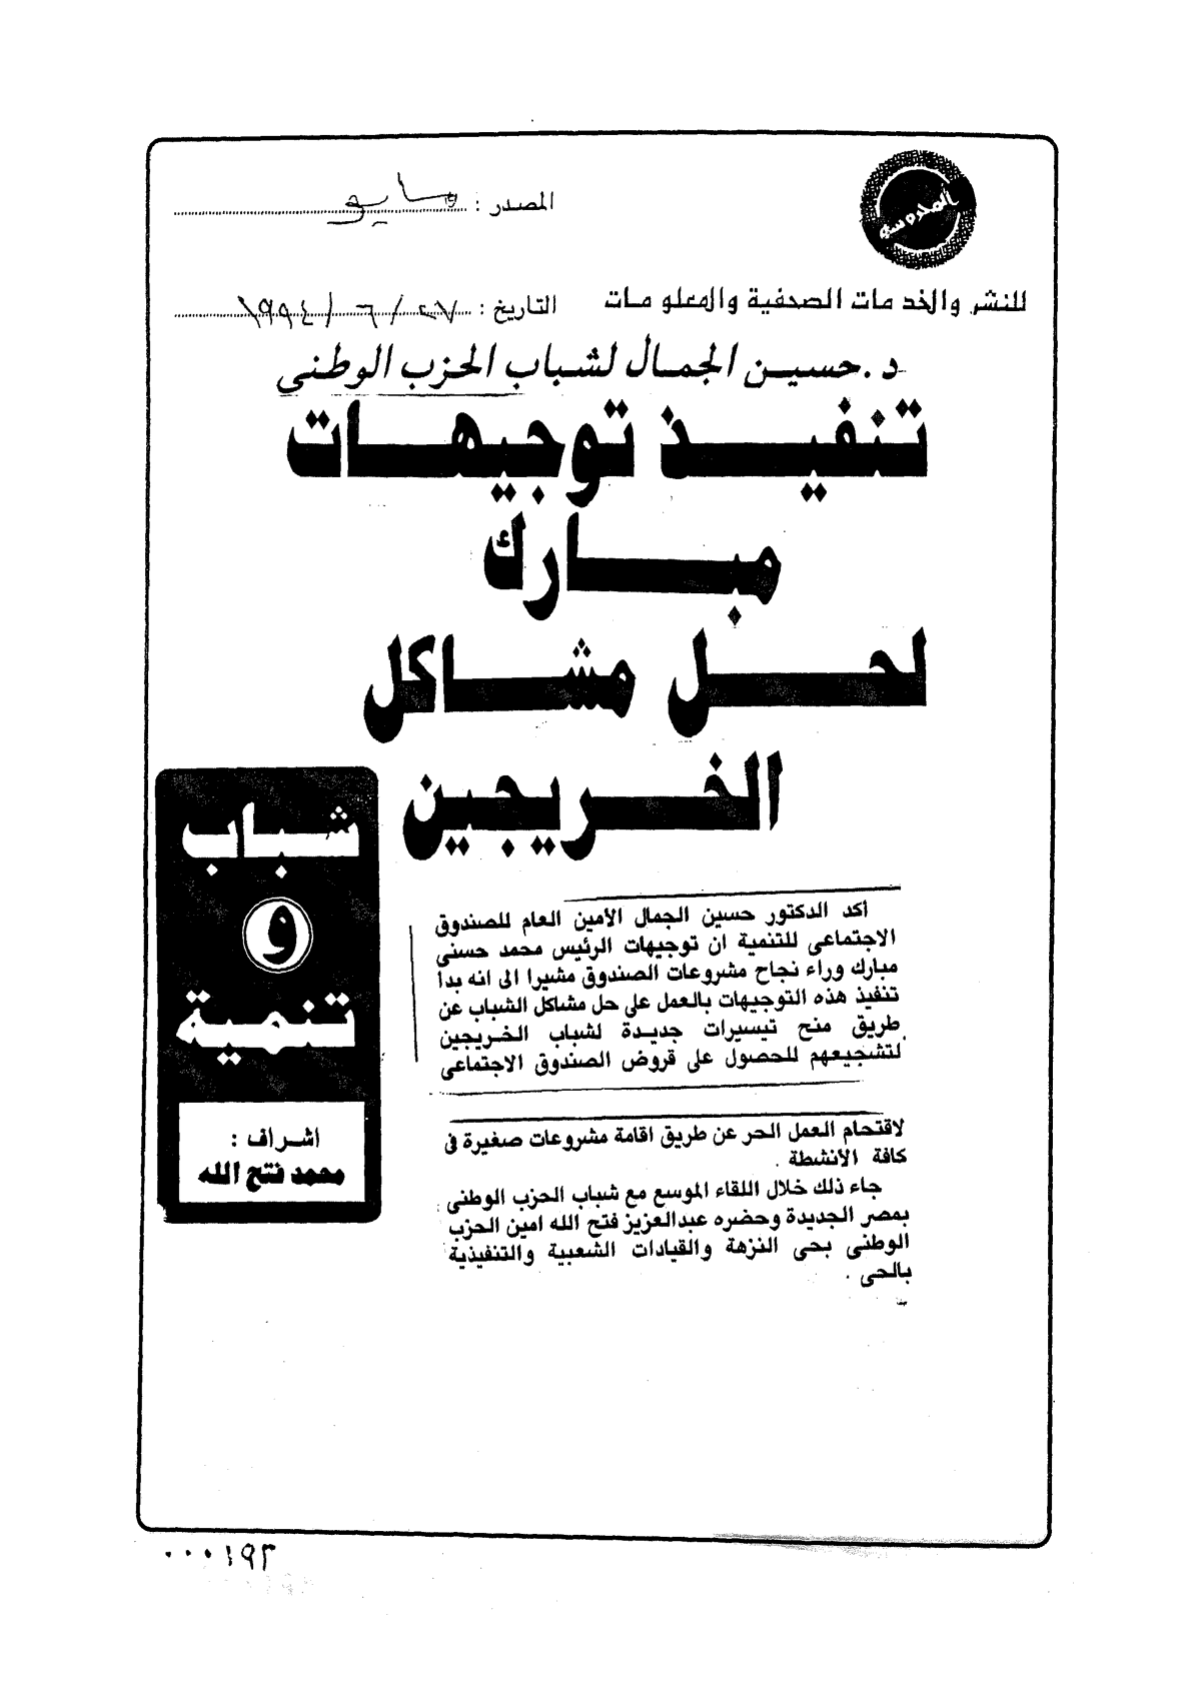 المحروسة
المصدر : مايو
للنشر والخدمات الصحفية والمعلومات
التاريخ : ٢٧ / ٦ / ١٩٩٤
د . حسين الجمال لشباب الحزب الوطنى
تنفيذ توجيهات
مبارك
لحل مشاكل
الخريجين
شباب
و
تنمية
اشراف :
محمد فتح الله
أكد الدكتور حسين الجمال الأمين العام للصندوق
الاجتماعى للتنمية ان توجيهات الرئيس محمد حسنى
مبارك وراء نجاح مشروعات الصندوق مشيرا الى انه بدأ
تنفيذ هذه التوجيهات بالعمل على حل مشاكل الشباب عن
طريق منح تيسيرات جديدة لشباب الخريجين
لتشجيعهم للحصول على قروض الصندوق الاجتماعى
لاقتحام العمل الحر عن طريق اقامة مشروعات صغيرة فى
كافة الأنشطة .
جاء ذلك خلال اللقاء الموسع مع شباب الحزب الوطنى
بمصر الجديدة وحضره عبدالعزيز فتح الله امين الحزب
الوطنى بحى النزهة والقيادات الشعبية والتنفيذية
بالحى .
٠٠٠١٩٣